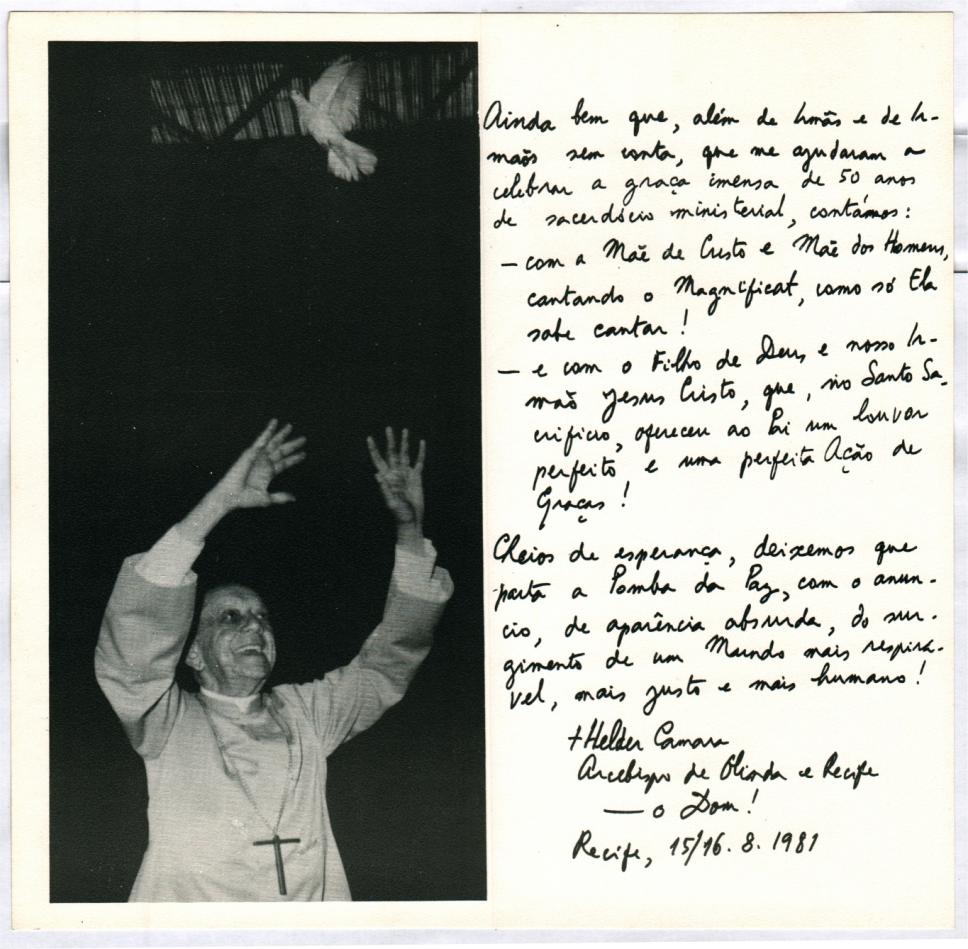 Ainda bem que, além de Irmãs e de Ir-
mãos sem conta, que me ajudaram a
celebrar a graça imensa de 50 anos
de sacerdócio ministerial, contámos:
— com a Mãe de Cristo e Mãe dos Homens,
cantando o Magnificat, como só Ela
sabe cantar!
— e com o Filho de Deus e nosso Ir-
mão Jesus Cristo, que, no Santo Sa-
crifício, ofereceu ao Pai um louvor
perfeito e uma perfeita Ação de
Graças!
Cheios de esperança, deixemos que
parta a Pomba da Paz, com o anun-
cio, de aparência absurda, do sur-
gimento de um Mundo mais respirá-
vel, mais justo e mais humano!
+ Helder Camara
Arcebispo de Olinda e Recife
— o Dom!
Recife, 15/16.8.1981